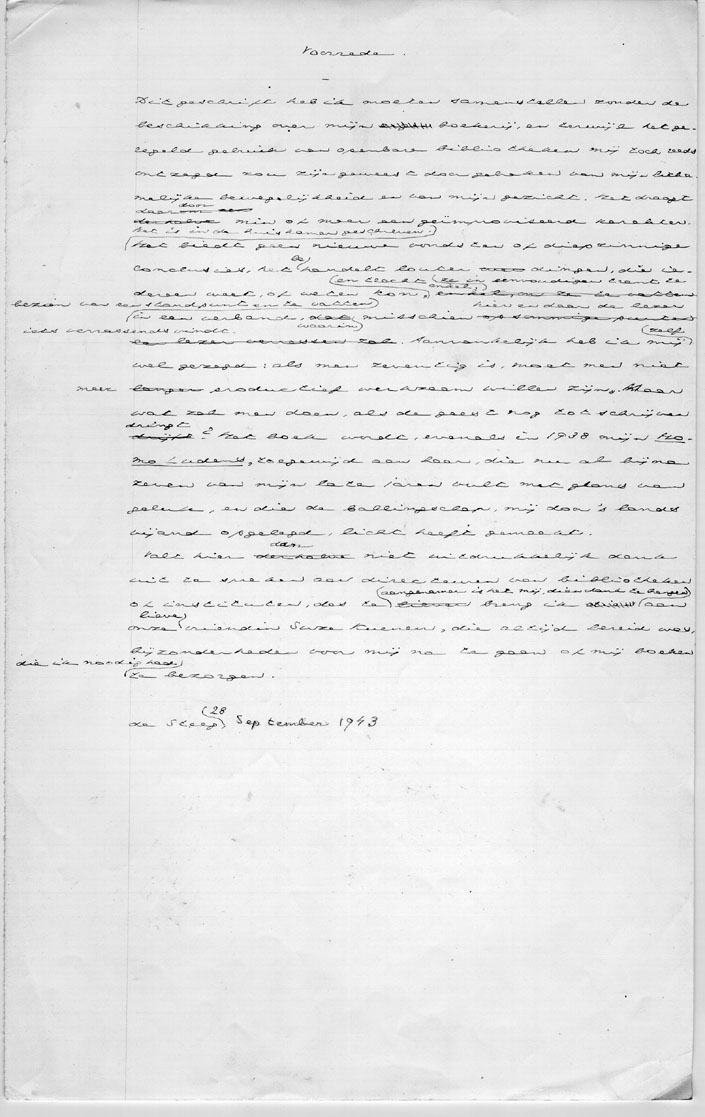 Voorrede.
Dit geschrift heb ik moeten samenstellen zonder de
beschikking over mijn boekerij, en terwijl het ge-
regeld gebruik van openbare bibliotheken mij toch reeds
ontzegd zou zijn geweest door gebreken van mijn licha-
melijke bewegelijkheid en van mijn gezicht. Het draagt
door
daarom
derhalve min of meer een geïmproviseerd karakter.
Het is in de huiskamer geschreven.
Het biedt geen nieuwe vondsten of diepzinnige
conclusies, het behandelt louter dingen, die ie-
en tracht ze in eenvoudigen trant te
dereen weet, of weten kon, enkel, om ze te vatten
bezien van een standpunt en te vatten hier en daar de lezer
in een verband, dat misschien op sommige punten
iets verrassends vindt. waarin zelf
en lezer verrassen zal. Aanvankelijk heb ik mij
wel gezegd: als men zeventig is, moet men niet
meer langer productief werkzaam willen zijn. Maar
wat zal men doen, als de geest nog tot schrijven
dringt
drijft? Het boek wordt, evenals in 1938 mijn Ho-
mo Ludens, toegewijd aan haar, die nu al bijna
zeven van mijn late jaren vult met glans van
geluk, en die de ballingschap, mij door 's lands
vijand opgelegd, licht heeft gemaakt.
dan
Valt hier derhalve niet uitdrukkelijk dank
uit te spreken aan directeuren van bibliotheken
aangenamer is het mij, dien dank te brengen
of instituten, des te liever breng ik aan
lieve
onze vriendin Suze Kuenen, die altijd bereid was,
bijzonderheden voor mij na te gaan of mij boeken
die ik noodig had.
te bezorgen.
28
de Steeg, September 1943